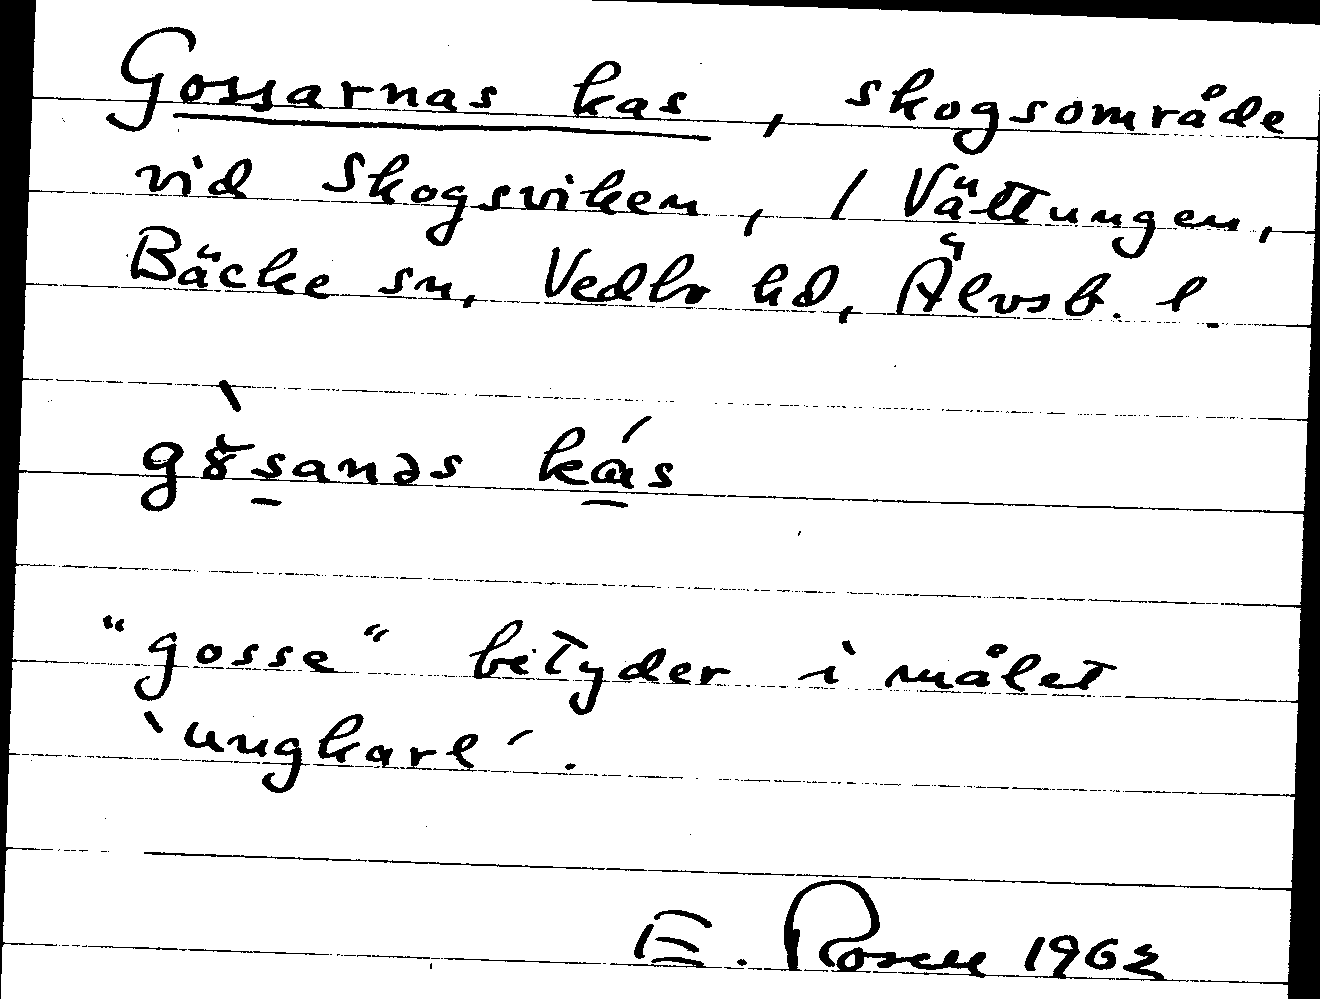 Gossarnas kas, skogsområde
vid Skogsviken, / Vättungen,
Bäcke sn, Vedbo hd, Älvsb. l.
kás
"gosse" betyder i målet
'ungkarl'.
E. Rosen 1962